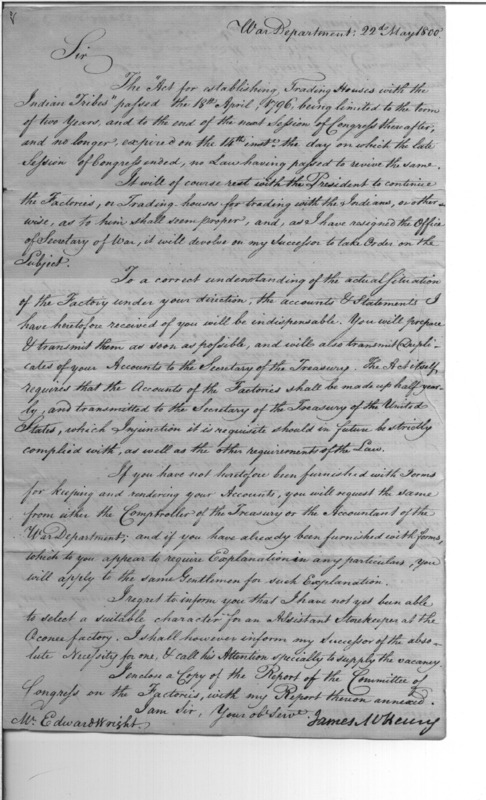 War Department: 22d May 1800.
Sir
The "Act for establishing Trading Houses with the
Indian Tribes" passed the 18th April, 1796, being limited to the term
of two Years, and to the end of the next Session of Congress thereafter,
and no longer, expired on the 14th inst: the day on which the late
Session of Congress ended, no Law having passed to revive the same.
It will of course rest with the President to continue
the Factories, or Trading-houses for trading with the Indians, or other-
wise, as to him shall seem proper, and, as I have resigned the Office
of Secretary of War, it will devolve on my Successor to take Order on the
Subject.
To a correct understanding of the actual Situation
of the Factory under your direction, the accounts & Statements I
have heretofore received of you will be indispensable. You will prepare
& transmit them as soon as possible, and will also transmit Dupli-
cates of your Accounts to the Secretary of the Treasury. The Act itself,
requires that the Accounts of the Factories shall be made up half year-
ly, and transmitted to the Secretary of the Treasury of the United
States, which Injunction it is requisite should in future be strictly
complied with, as well as the other requirements of the Law.
If you have not heretofore been furnished with Forms
for keeping and rendering your Accounts, you will request the same
from either the Comptroller of the Treasury or the Accountant of the
War Department; and if you have already been furnished with forms,
which to you appear to require Explanation in any particulars, you
will apply to the same Gentlemen for such Explanation.
I regret to inform you that I have not yet been able
to select a suitable character for an Assistant Storekeeper at the
Oconee factory. I shall however inform my Successor of the abso-
lute Necessity for one, & call his Attention specially to supply the vacancy.
I enclose a Copy of the Report of the Committee of
Congress on the Factories, with my Report thereon annexed.
I am Sir, Your obt Servt
James McHenry
Mr. Edward Wright.